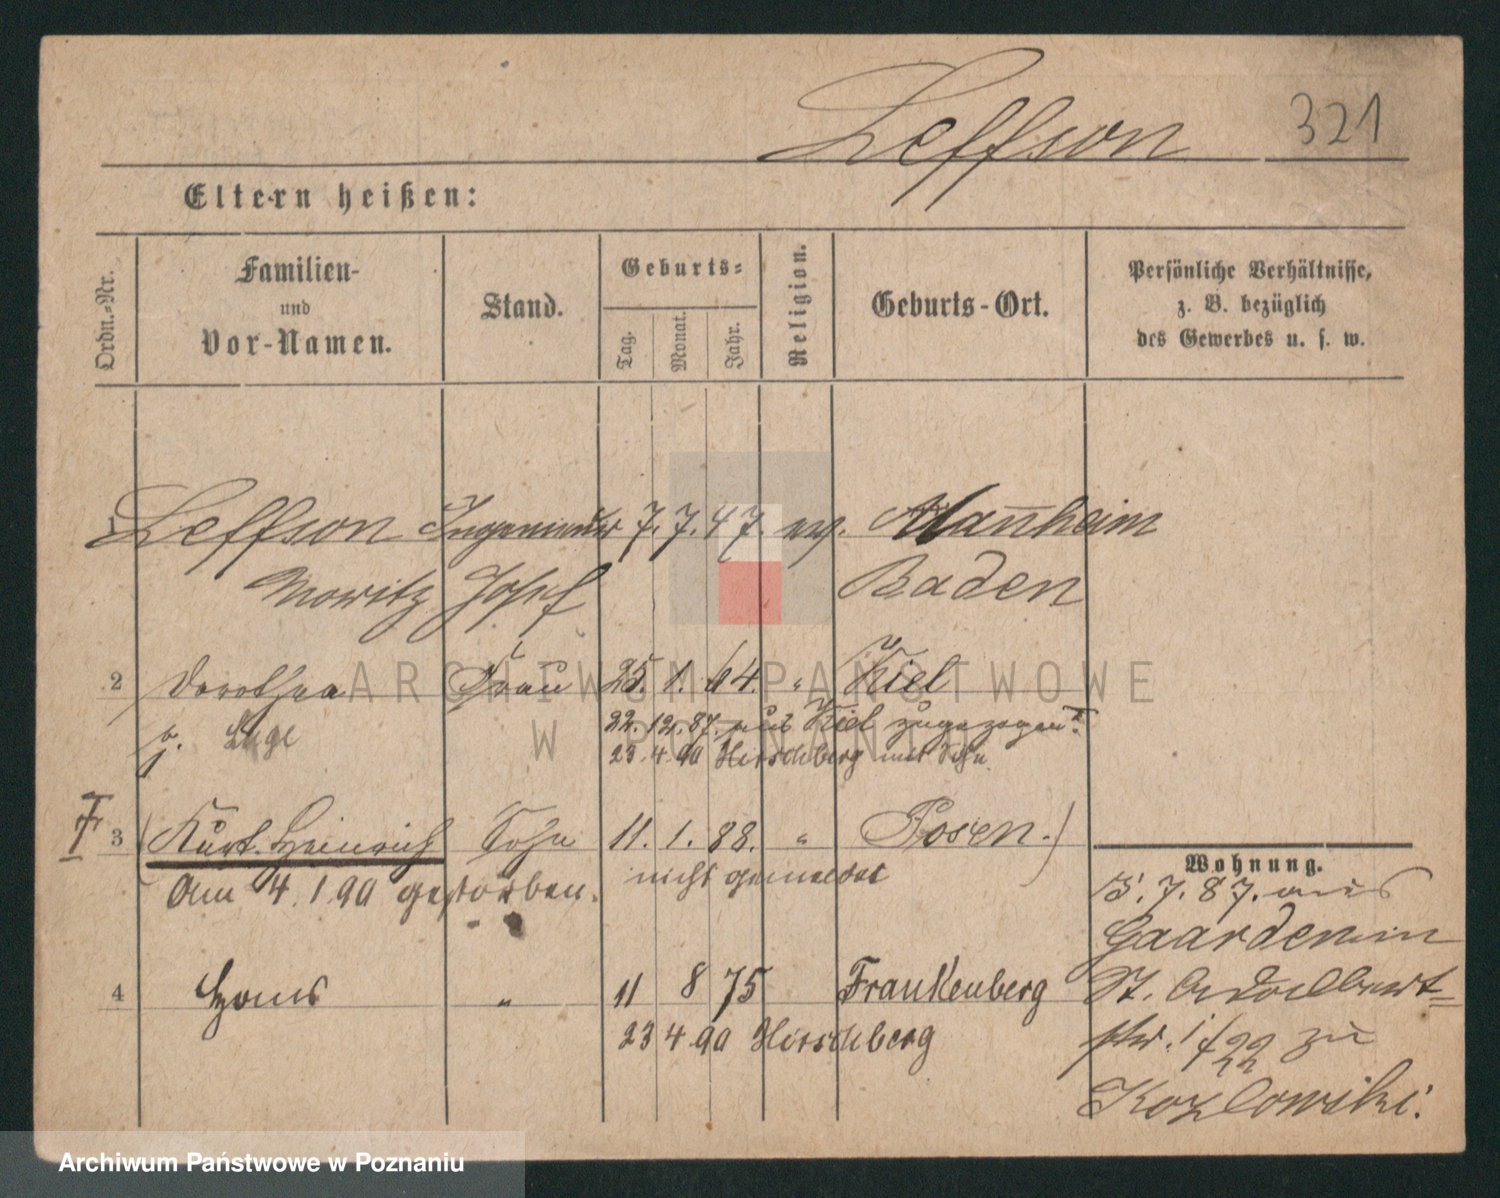 Leffson 321
Eltern heißen:
Ordn.-Nr.
Familien-
und
Vor-Namen.
Stand.
Geburts-
Tag.
Monat.
Jahr.
Religion.
Geburts-Ort.
Persönliche Verhältnisse,
z. B. bezüglich
des Gewerbes u. s. w.
1 Leffson Ingenieur 7. 7. 47. ev. Mannheim
Moritz Josef Baden
2 Dorothea Frau 25. 1. 64. " Kiel
g. Lüge
22. 12. 87. aus Kiel zugezogen.
23. 4. 90 Hirschberg mit Sohn
3 (Kurt Heinrich Sohn 11. 1. 88. " Posen.)
Am 4. 1. 90 gestorben. nicht gemeldet
4 Hans " 11 8 75 Frankenberg
23 4 90 Hirschberg
Wohnung.
5. 7. 87. aus
Gaarden in
St. Adalbert=
str. 1/22 zu
Kozlowski.
ARCHIWUM PAŃSTWOWE
W POZNANIU
Archiwum Państwowe w Poznaniu